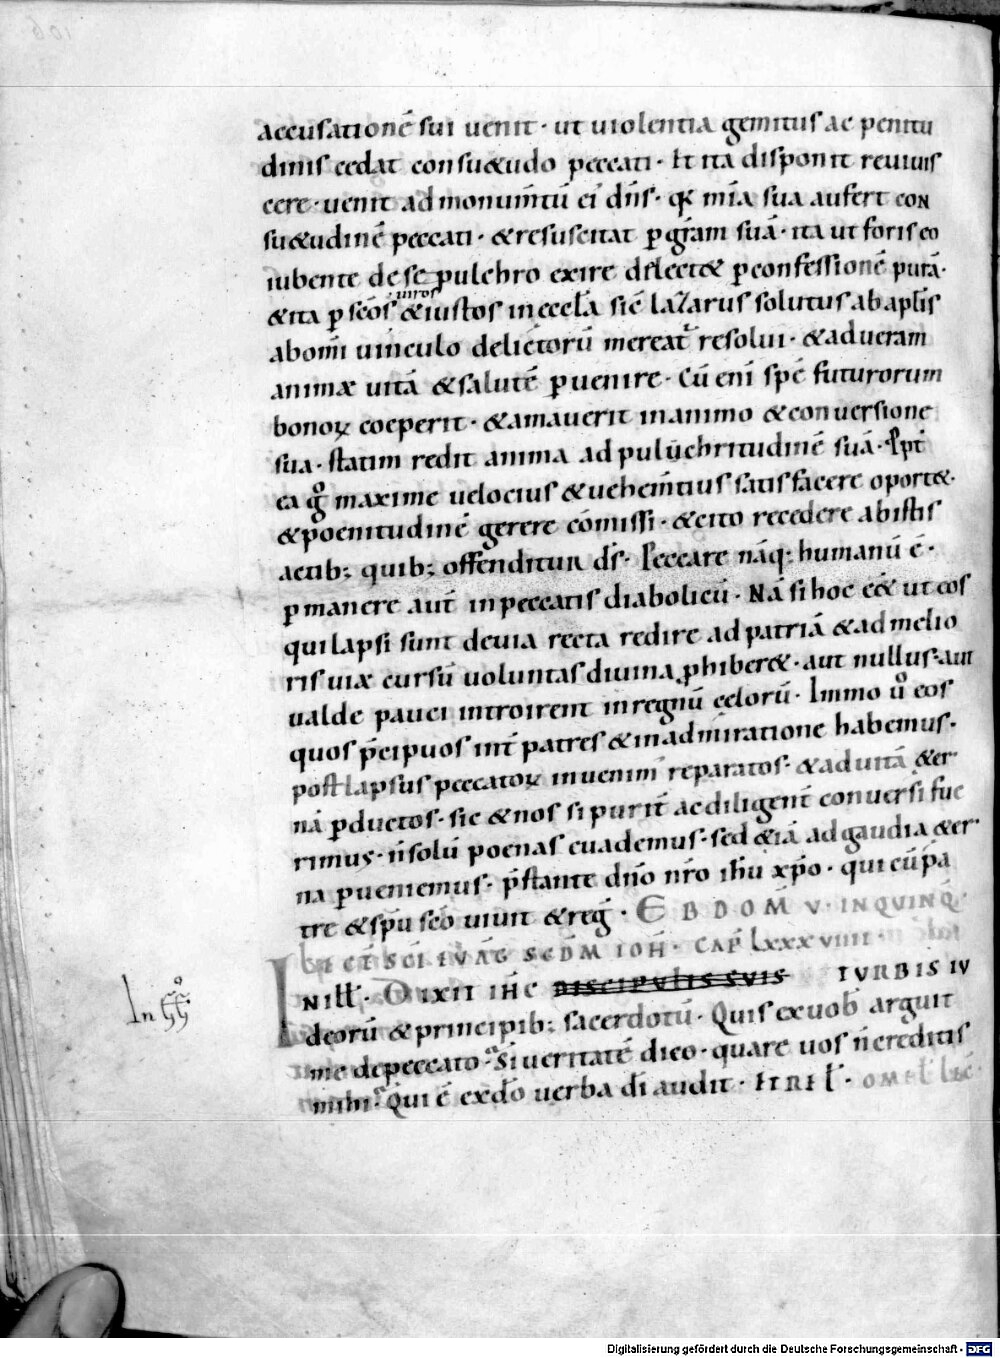 accusationē sui uenit · ut uiolentia gemitus ac penitu
dinis cedat consu&udo peccati · Et ita disponit reuiuis
cere · uenit ad monum̄tū ei dn̄s · q̄ mīa sua aufert con
su&udinē peccati · & resuscitat ꝑ gr̄am suā · ita ut foris eo
iubente de se pulchro exire delect& ꝑ confessionē purā ·
uiros
& ita ꝑ scōs & iustos in eccl̄a sic̄ lazarus solutus ab ap̄lis
ab om̄i uinculo delictorū mereat̄ resolui · & ad ueram
animæ uitā & salutē ꝑuenire · Cū eni spē futurorum
bonoꝝ coeperit · & amauerit in animo & conuersione
sua · statim redit anima ad pulúchritudinē suā · Ꝓpt̄
ea g̊ maxime uelocius & uehem̄tius satisfacere oport& ·
& poenitudinē gerere cōmissi · & cito recedere ab istis
actib; quib; offenditur d̄s · Peccare nāq; humanū ē ·
ꝑmanere aut̄ in peccatis diabolicū · Nā si hoc eē& ut eos
qui lapsi sunt deuia recta redire ad patriā & ad melio
ris uiæ cursū uoluntas diuina ꝓhiber& · aut nullus · aut
ualde pauci introirent in regnū celorū · Immo ů eos
quos p̄cipuos int̄ patres & in admiratione habemus ·
post lapsus peccatoꝝ inuenim̄ reparatos · & ad uitā &er
nā ꝑductos · sic & nos si purit̄ ac diligent̄ conuersi fue
rimus · n̄ solū poenas euademus · sed &iā ad gaudia &er
na ꝑueniemus · p̄stante dn̄o nr̄o ih̄u xp̄o · qui cū pa
tre & sp̄u scō uiuit & reḡ · EBDOM̄ V · IN QVINQ̄ ·
LECT̄ SC̄I EVĀG SECDM IOH̄ · CAP̄ LXXXVIIII ·
IN ill̄ · DIXIT IHC DISCIPVLIS SVIS TVRBIS IV
In
deorū & principib; sacerdotū · Quis ex uob̄ arguit
me de peccato · Si ueritatē dico · quare uos n̄ creditis
mihi · Qui ē ex dō uerba dī audit · ET REL̄ · OMEL̄ LEC̄ ·
Digitalisierung gefördert durch die Deutsche Forschungsgemeinschaft - DFG